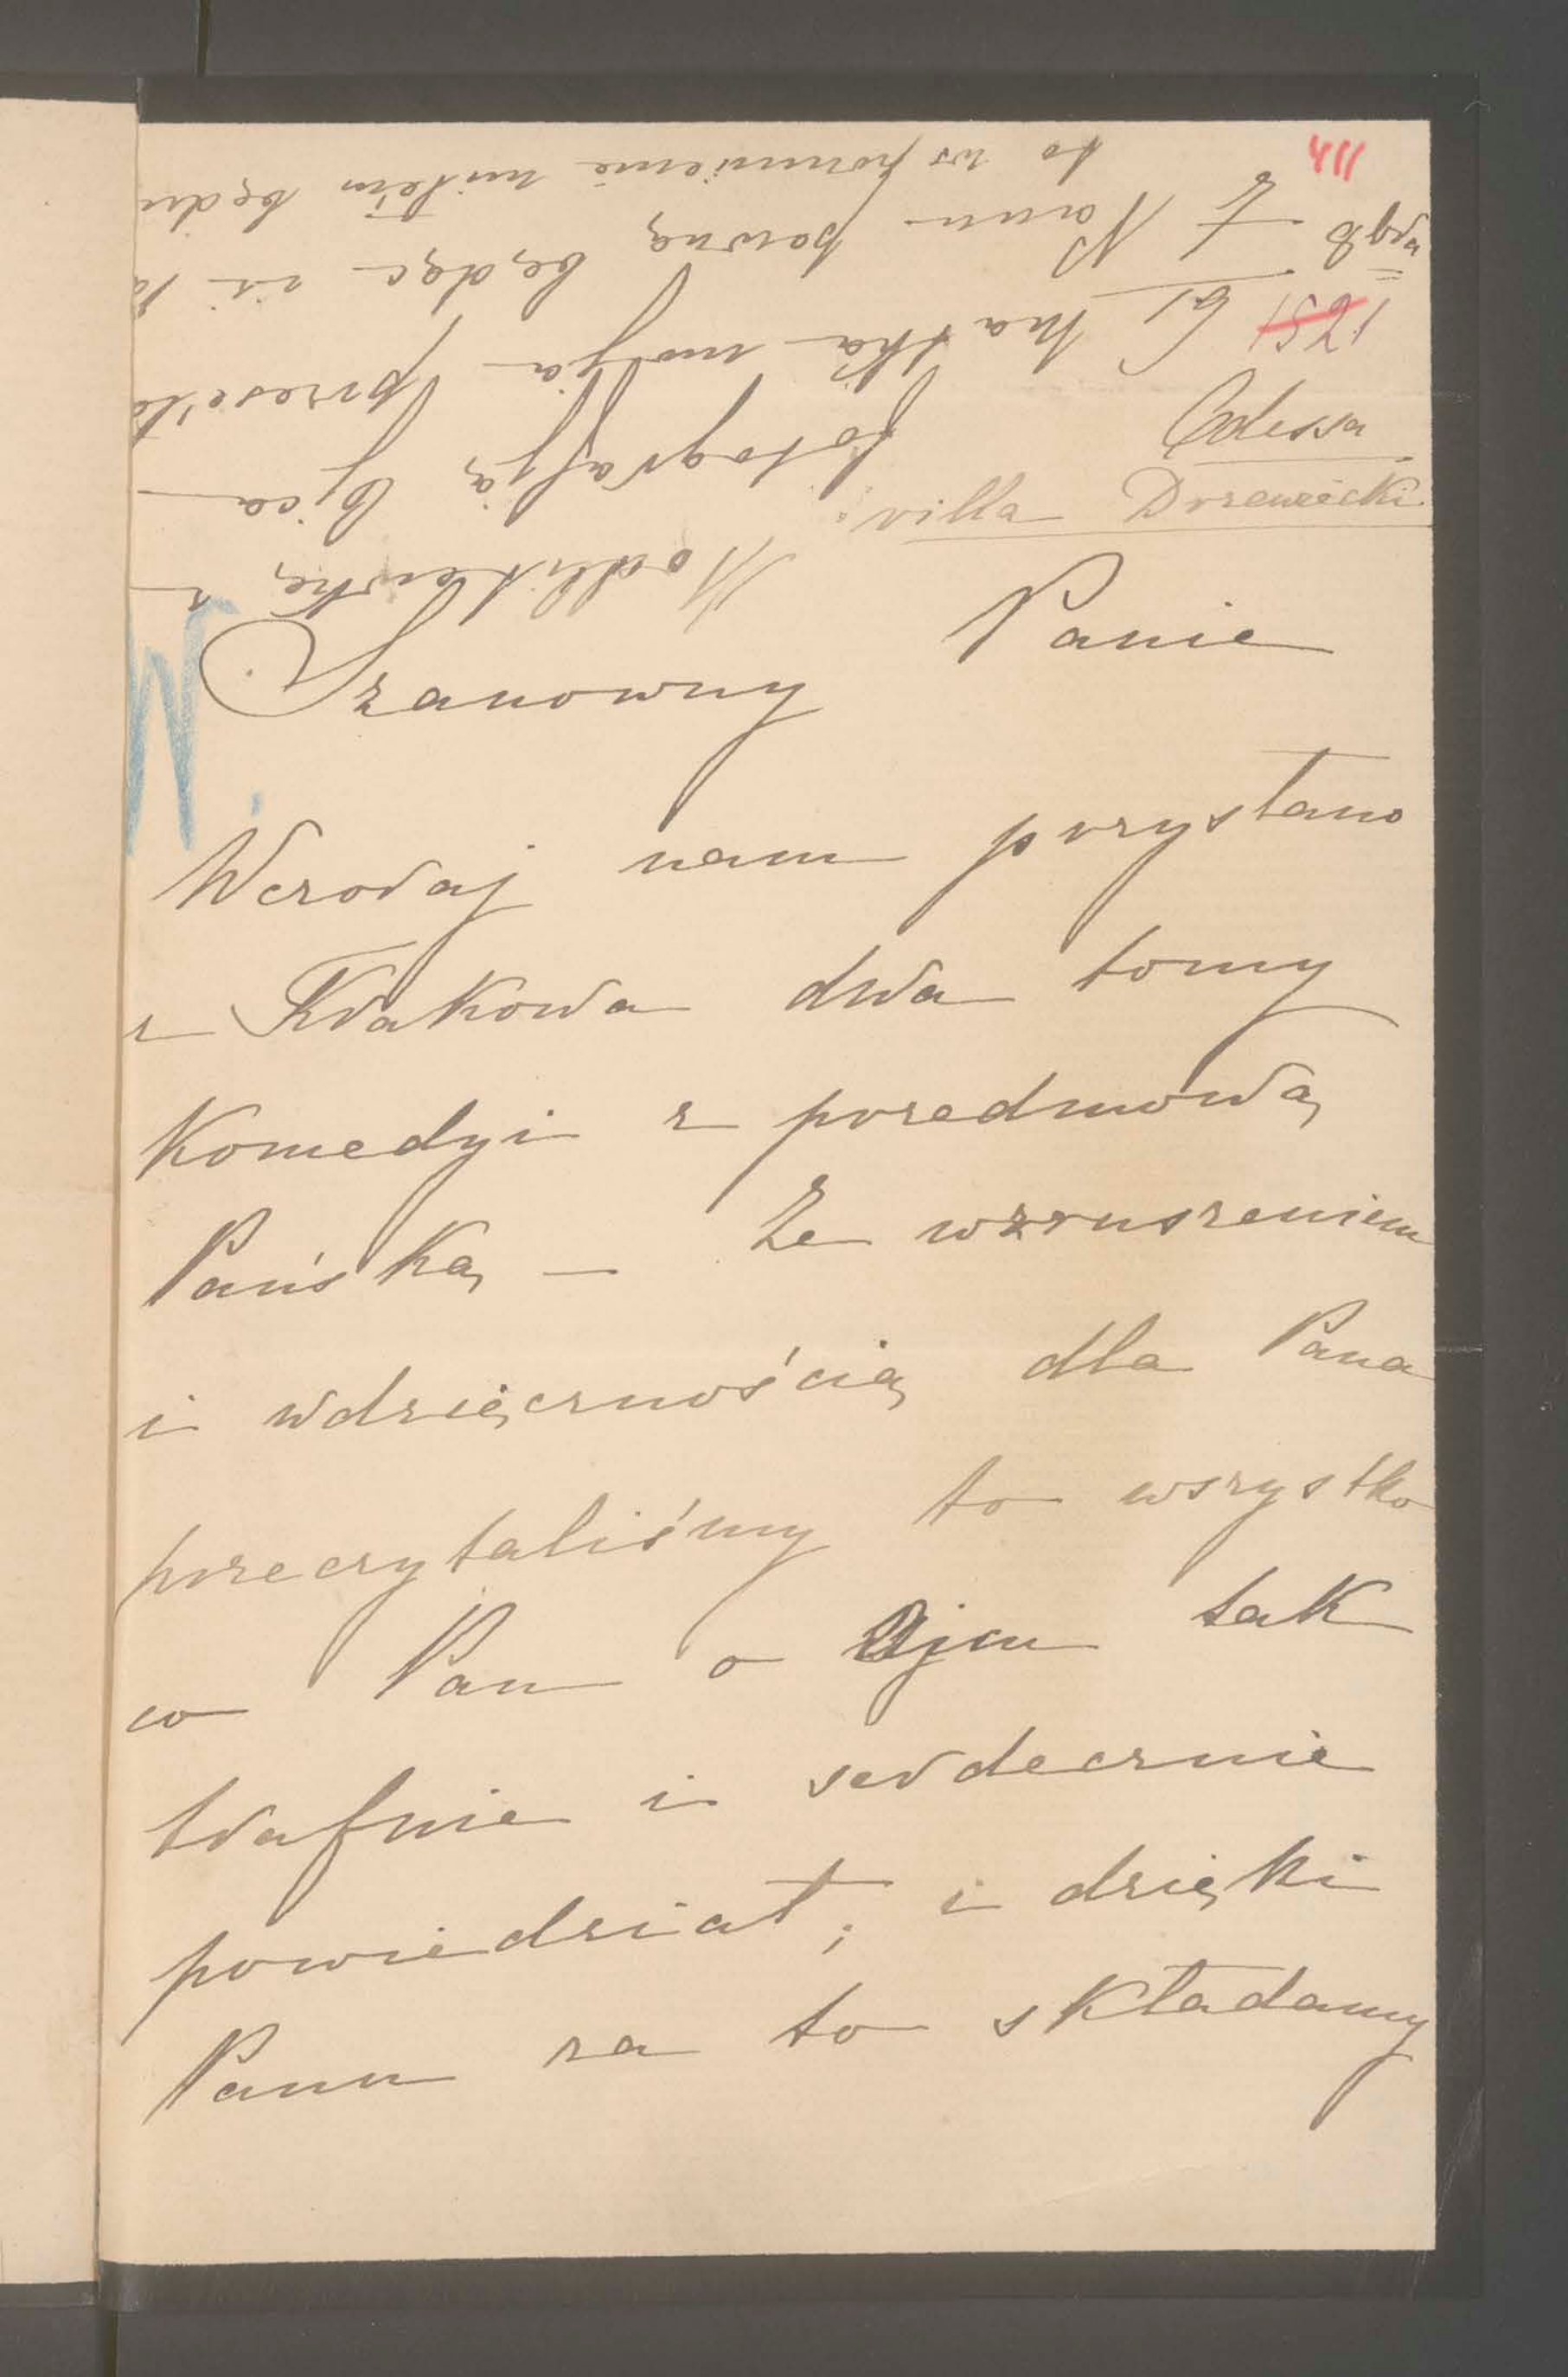 411
1251
Odessa
villa Drzewiecki
Szanowny Panie
Wczoraj nam przysłano
z Krakowa dwa tomy
Komedyi z przedmową
Pańską – Ze wzruszeniem
i wdzięcznością dla Pana
przeczytaliśmy to wszystko
co Pan o Ojcu tak
trafnie i serdecznie
powiedział; i dzięki
Panu za to składamy
Modlitewkę z
fotografją Ojca
Matka moja przesyła
Panu pewną będąc iż
to wspomnienie miłem będzie